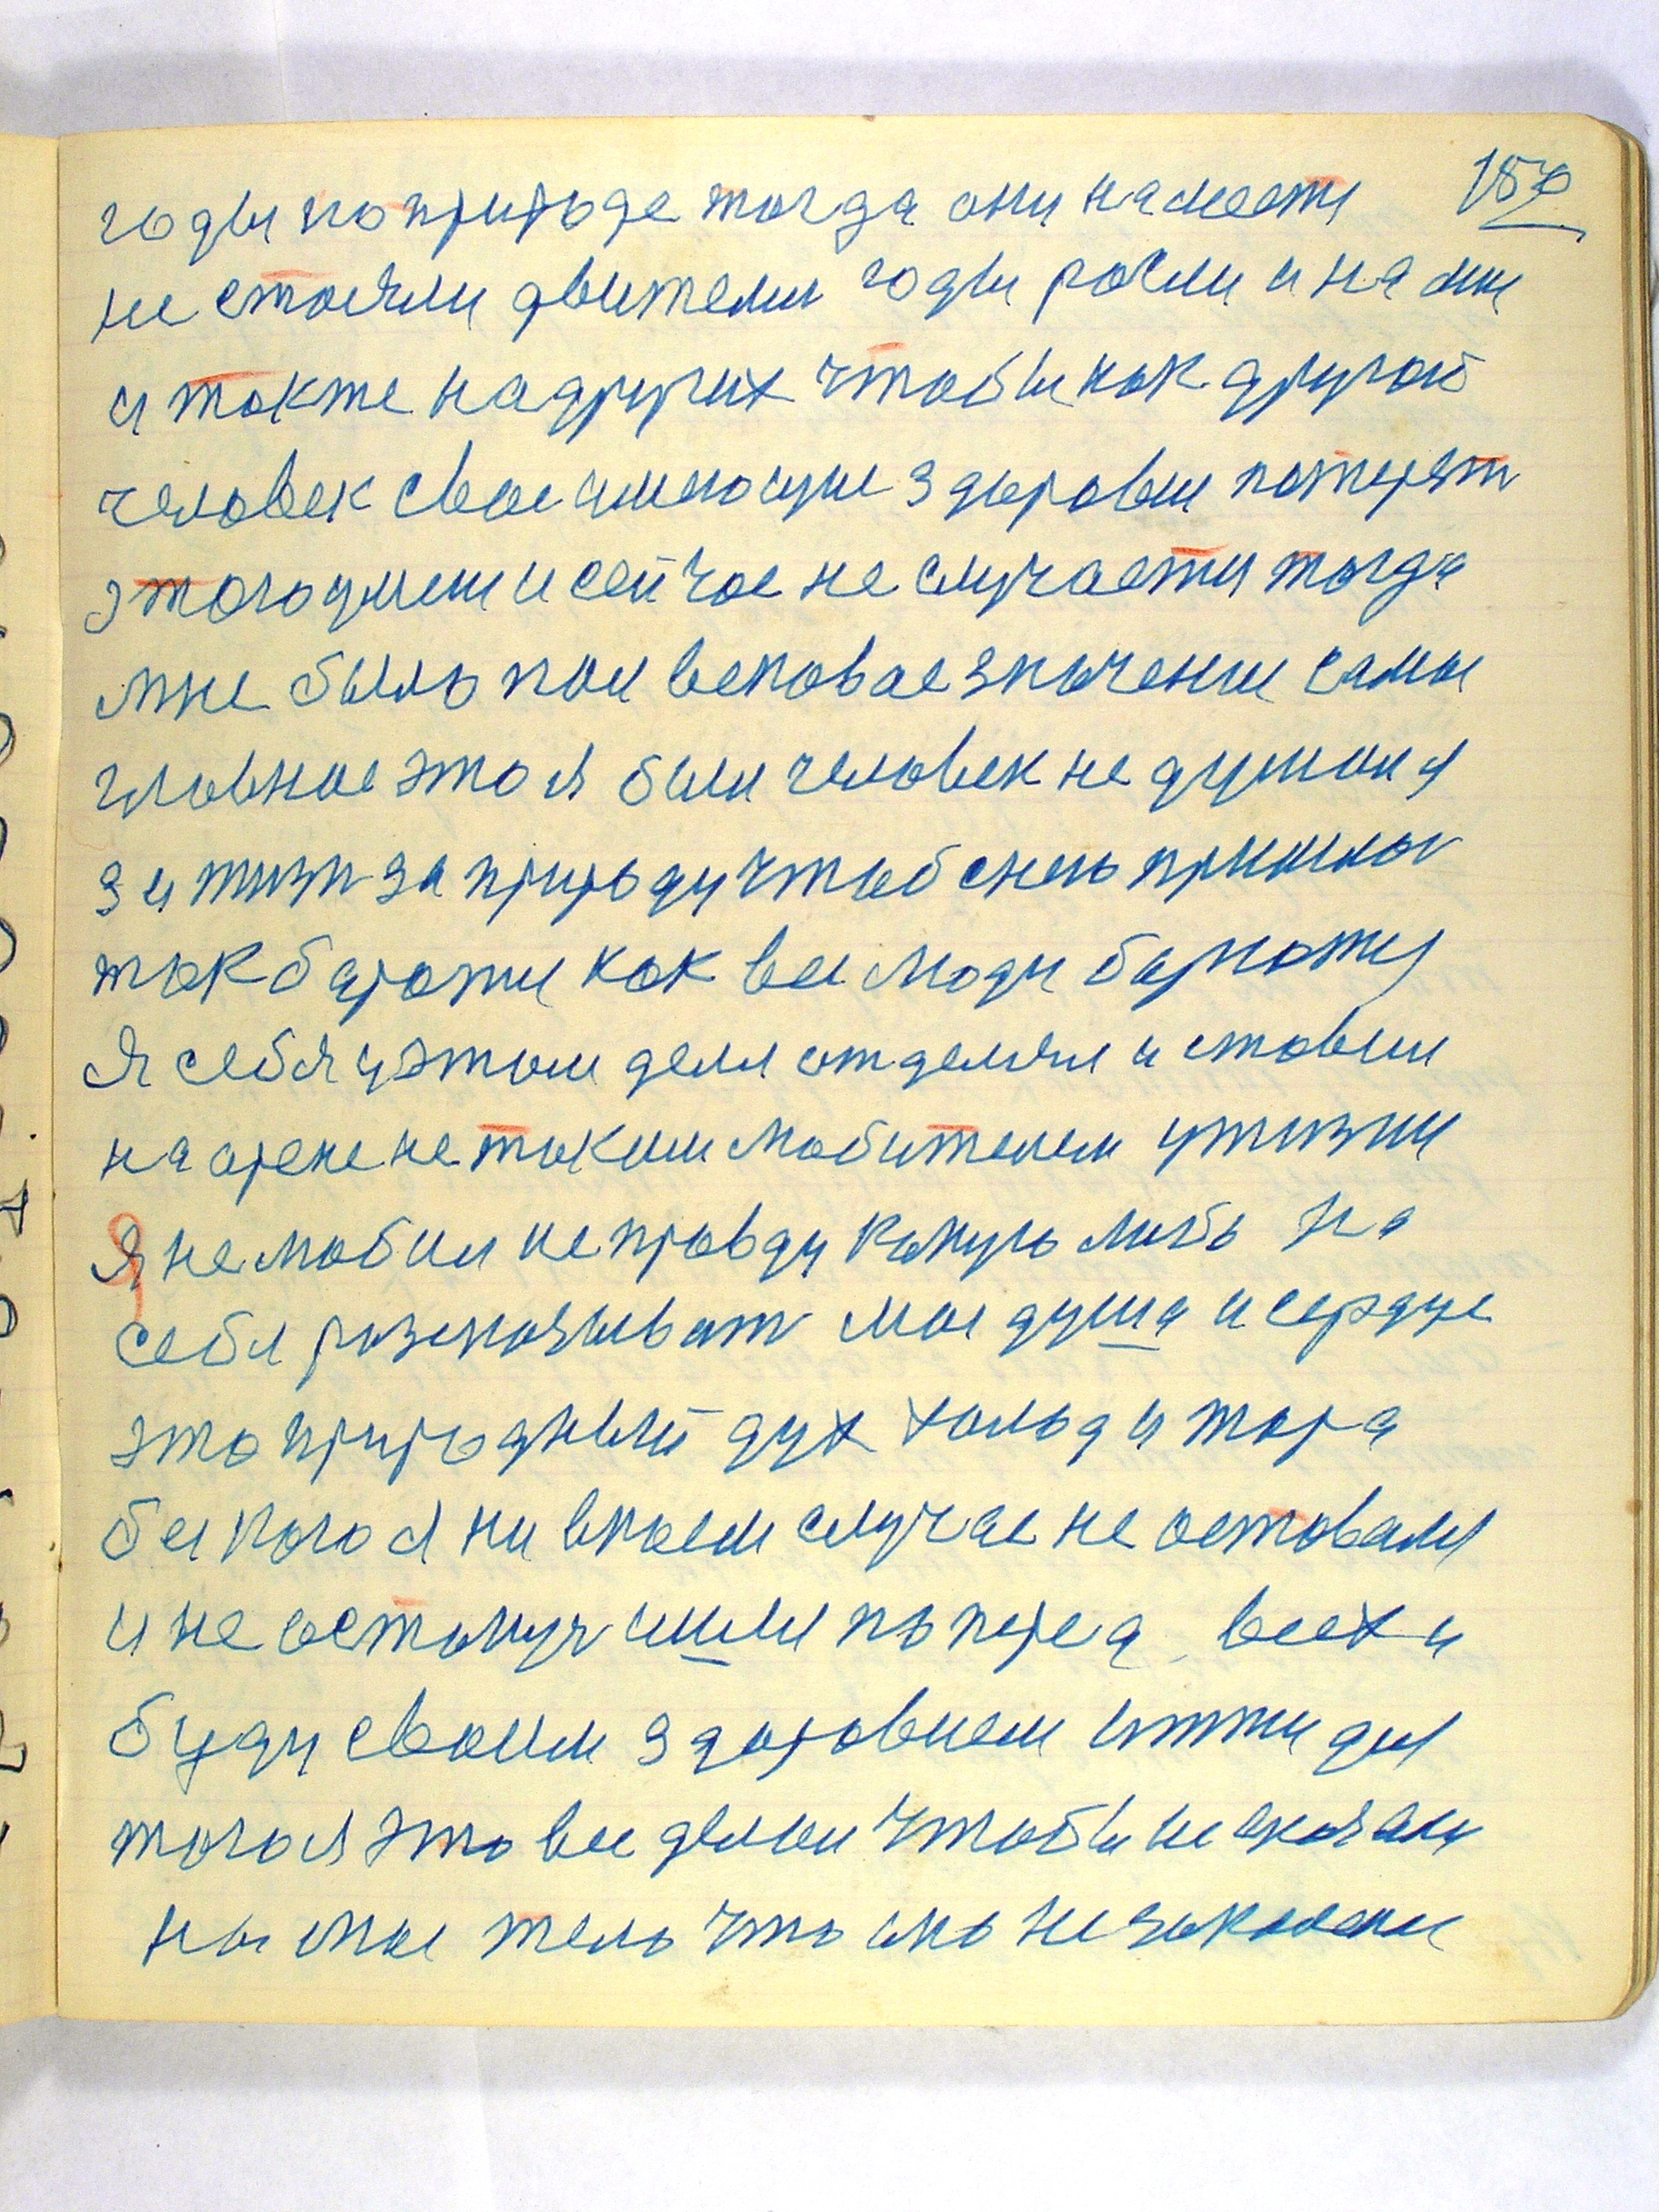 157
годы по природе тогда они на месте
не стояли двители годы росли и на мне
и также на других чтобы как другой
человек свое имеющие здоровьи потерят
этого имеи и сейчас не случаети тогда
мне было пол вековое значение самое
главное это я был человек не думал я
за жизн за природу чтоб с нею пришлос
так бароти как все люди бароти
Я себя у этом деле отделял и ставил
на арене не таким любителем у жизни
Я не любил неправду какую либо на
себя розсказыват мое душа и сердце
это природный дух холод и жара
без кого я ни в коем случае не оставаля
и не останус и шел поперед всех и
буду своим здоровием итти для
того я это все делаю чтобы не сказали
на мое тело что оно не закаленое